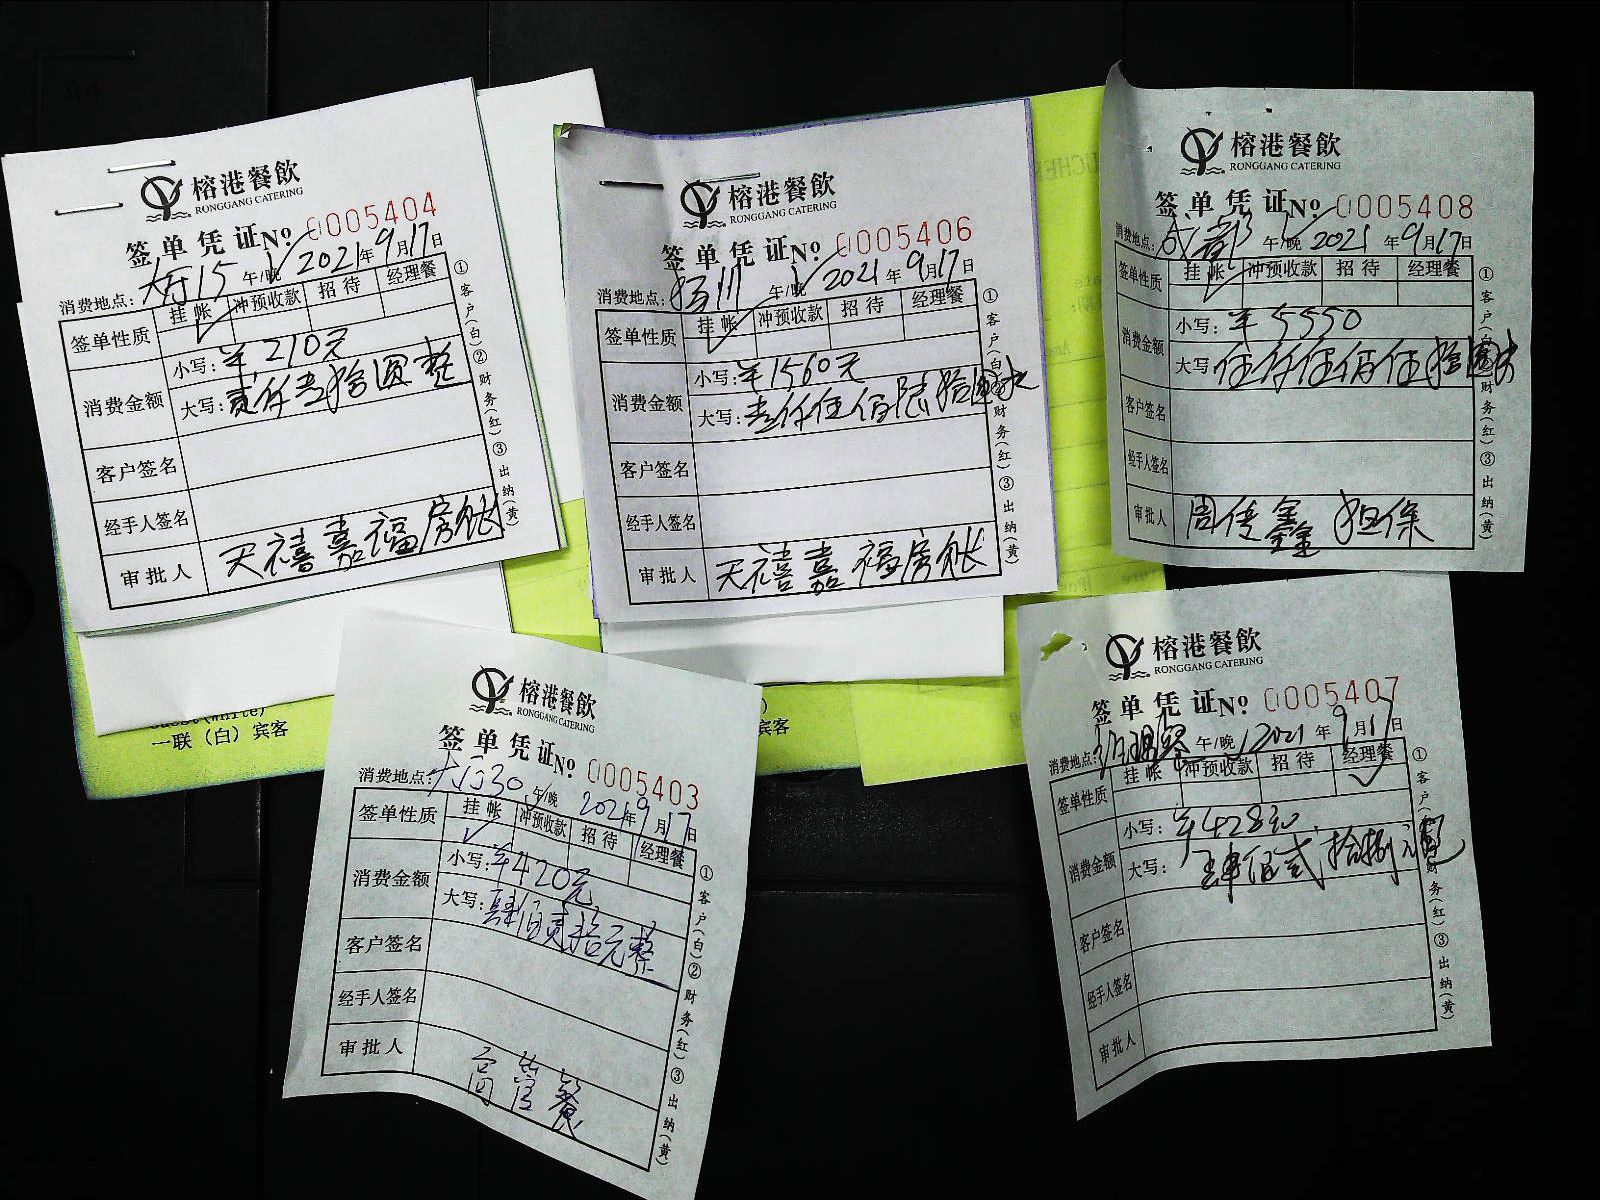 榕港餐飲
RONGGANG CATERING
签单凭证No 0005404
消费地点: 大厅15 午/晚 2021年9月17日
签单性质 挂帐 冲预收款 招待 经理餐
消费金额 小写: ¥210元
大写: 贰仟壹拾圆整
客户签名
经手人签名
审批人 天禧嘉福房帐
①客户(白)②财务(红)③出纳(黄)
榕港餐飲
RONGGANG CATERING
签单凭证No 0005406
消费地点: 扬州 午/晚 2021年9月17日
签单性质 挂帐 冲预收款 招待 经理餐
消费金额 小写: ¥1560元
大写: 壹仟伍佰陆拾圆
客户签名
经手人签名
审批人 天禧嘉福房帐
①客户(白)财务(红)③出纳(黄)
榕港餐飲
RONGGANG CATERING
签单凭证No 0005408
消费地点: 成都 午/晚 2021年9月17日
签单性质 挂帐 冲预收款 招待 经理餐
消费金额 小写: ¥5550
大写: 伍仟伍佰伍拾圆
客户签名
经手人签名
审批人 周传鑫 担保
①客户(白)财务(红)③出纳(黄)
一联（白）宾客
宾客
榕港餐飲
RONGGANG CATERING
签单凭证No 0005403
消费地点: 大厅30 午/晚 2021年9月17日
签单性质 挂帐 冲预收款 招待 经理餐
消费金额 小写: ¥420元
大写: 肆佰贰拾元整
客户签名
经手人签名
审批人 高管餐
①客户(白)②财务(红)③出纳(黄)
榕港餐飲
RONGGANG CATERING
签单凭证No 0005407
消费地点: 午/晚 2021年9月17日
签单性质 挂帐 冲预收款 招待 经理餐
消费金额 小写: ¥428元
大写: 肆佰贰拾捌元
客户签名
经手人签名
审批人
①客户(财务(红)③出纳(黄)